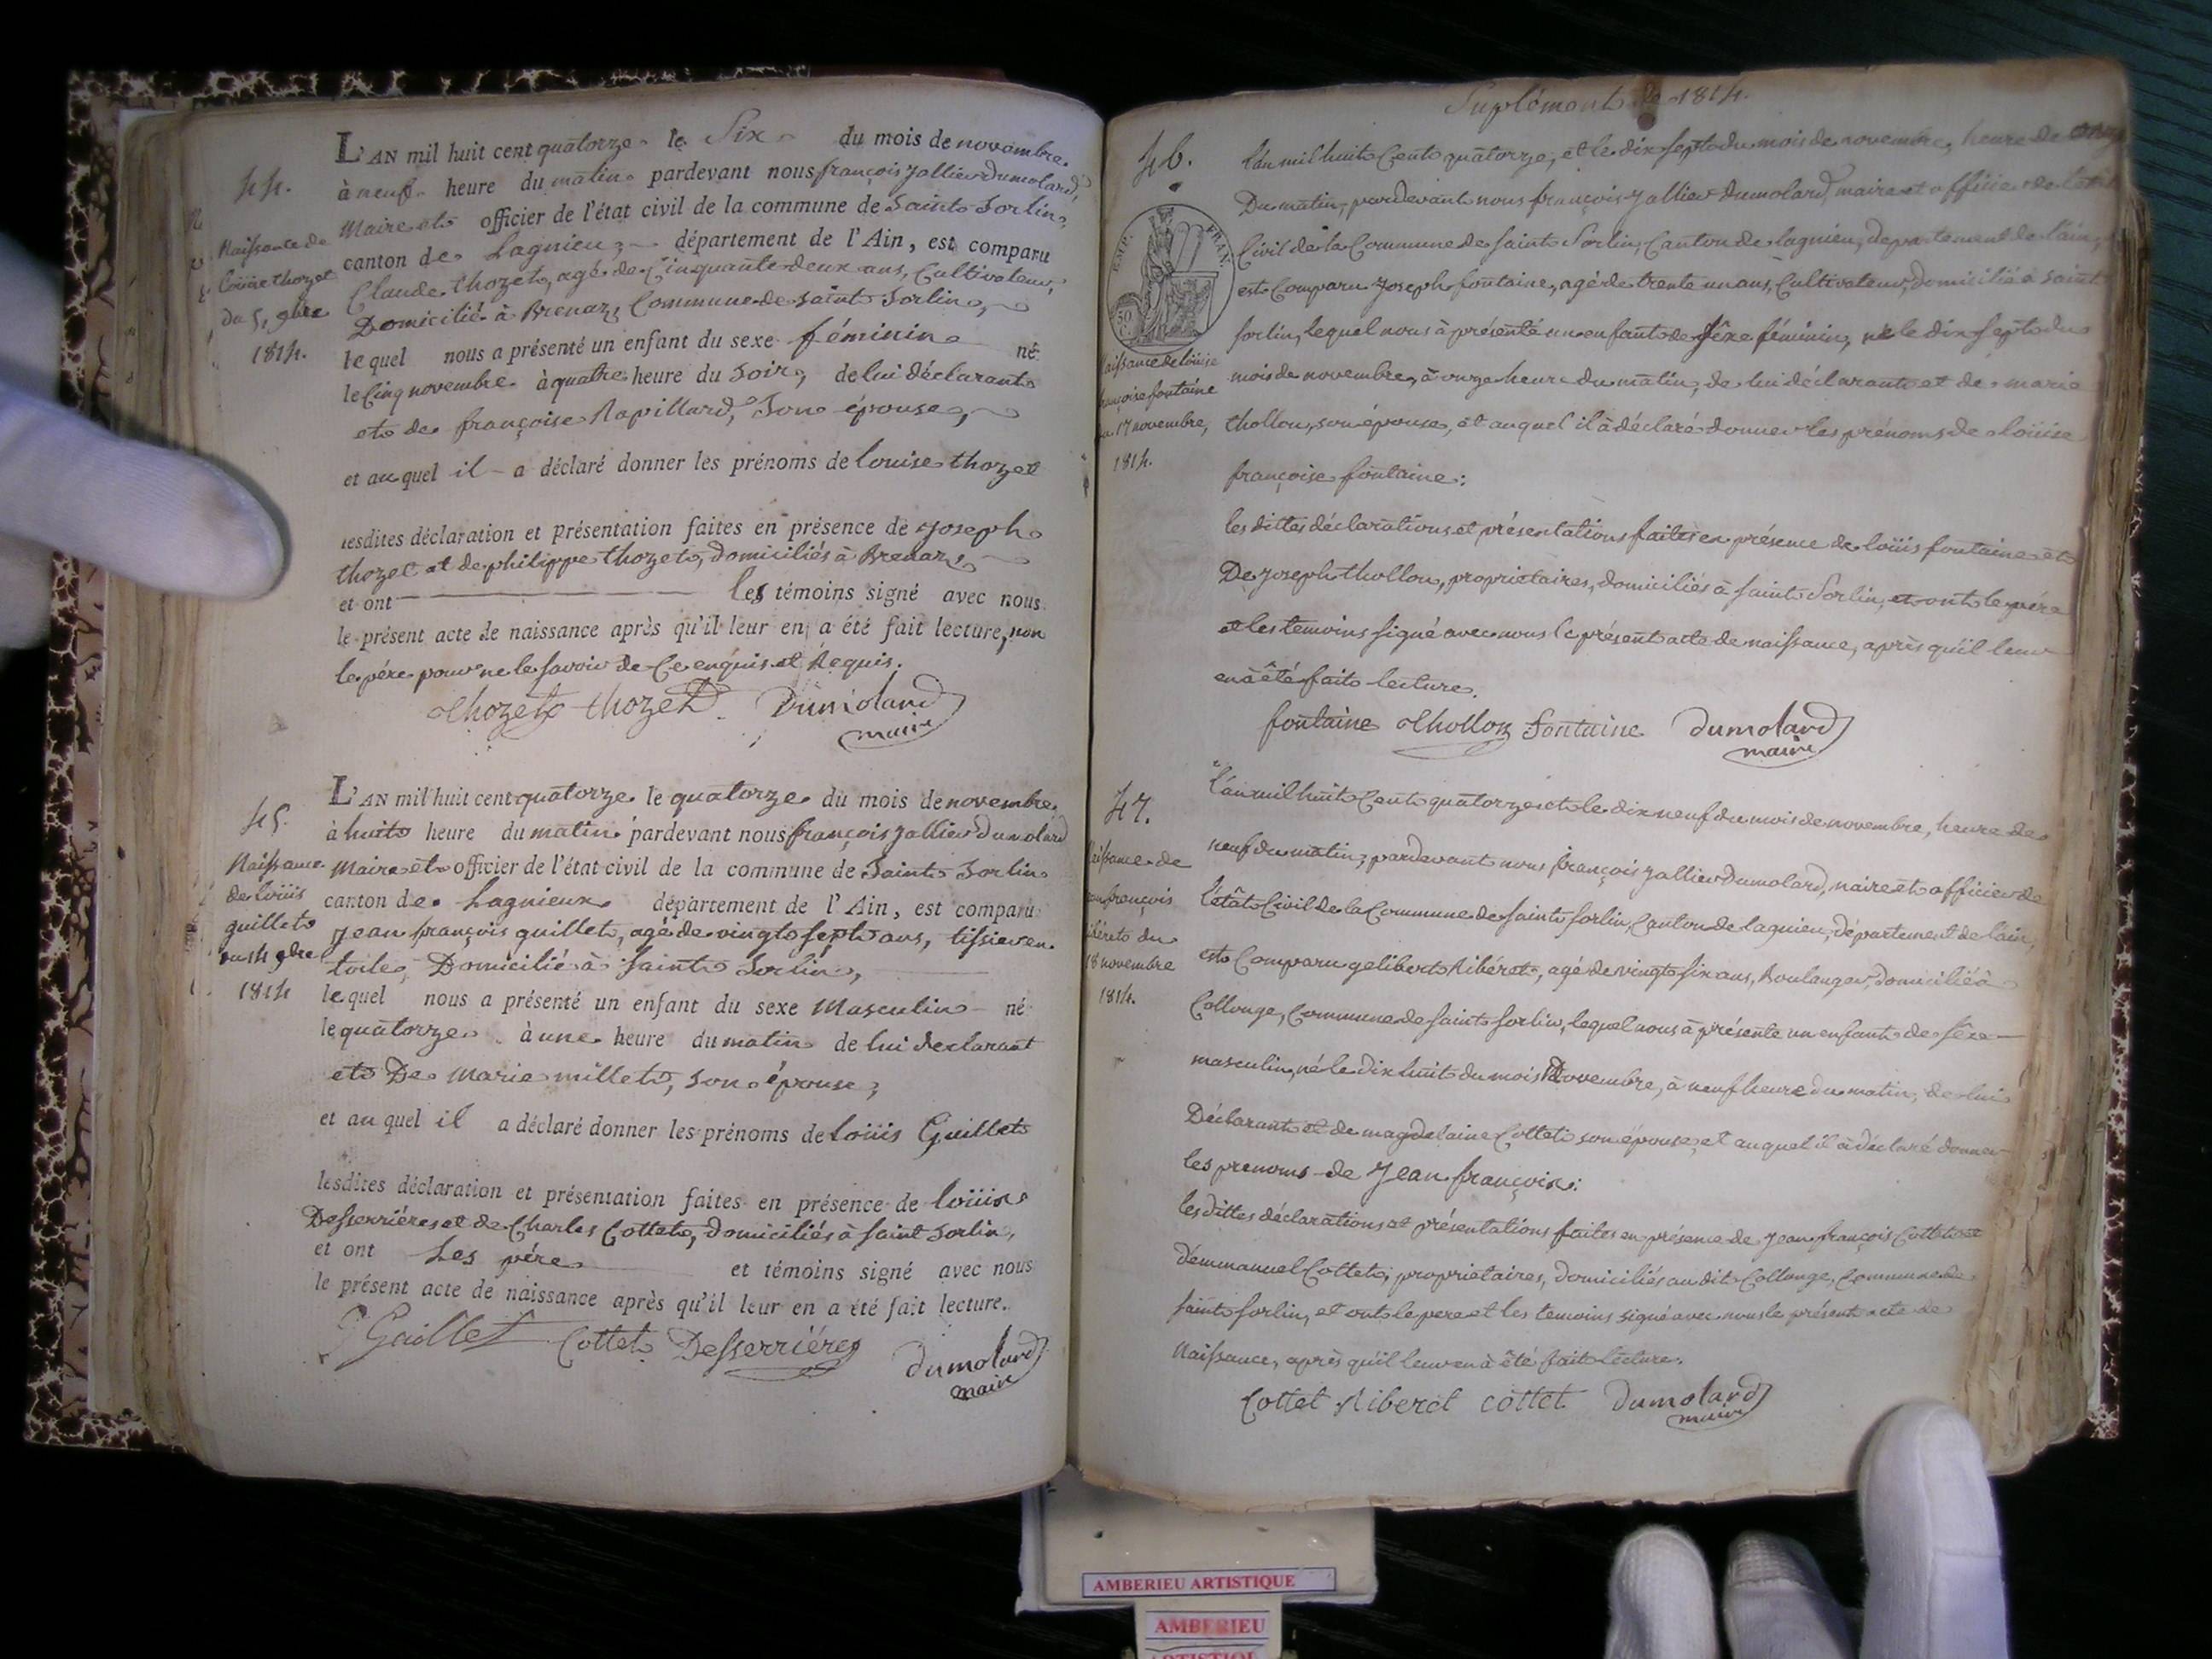 44.
Naissance de
Louise thozet
Du 5, 9bre
1814.
L'AN mil huit cent quatorze le Six du mois de novembre
à neuf heure du matin pardevant nous françois Jallier Dumolard,
Maire et officier de l'état civil de la commune de Saint Sorlin,
canton de Lagnieu, département de l'Ain, est comparu
Claude thozet, agé de Cinquante deux ans, Cultivateur,
Domicilié à Brenaz, Commune de saint Sorlin,
lequel nous a présenté un enfant du sexe féminin né
le Cinq novembre à quatre heure du Soir, de lui déclarant
et de françoise Rapillard, Son épouse,
et auquel il a déclaré donner les prénoms de louise thozet
lesdites déclaration et présentation faites en présence de Joseph
thozet et de philippe thozet, domiciliés à Brenaz,
et ont les témoins signé avec nous
le présent acte de naissance après qu'il leur en a été fait lecture, non
le pére pour ne le savoir de Ce enquis et Requis.
thozet thozet Dumolard
maire
45.
Naissance
de loüis
guillet
du 14 9bre
1814
L'AN mil huit cent quatorze le quatorze du mois de novembre,
à huit heure du matin pardevant nous françois Jallier Dumolard
Maire et officier de l'état civil de la commune de Saint Sorlin
canton de Lagnieux département de l'Ain, est comparu
Jean françois guillet, agé de vingt sept ans, tissier en
toile, Domicilié à Saint Sorlin,
lequel nous a présenté un enfant du sexe Masculin né
le quatorze à une heure du matin de lui declarant
et De Marie millet, son épouse,
et auquel il a déclaré donner les prénoms de Loüis Guillet
lesdites déclaration et présentation faites en présence de loüis
Desserriéres et de Charles Cottet, domiciliés à saint Sorlin,
et ont Les pére et témoins signé avec nous
le présent acte de naissance après qu'il leur en a été fait lecture.
Guillet Cottet Desserriéres dumolard
maire
Suplément de 1814.
46.
EMP. FRAN.
50
C.
Naissance de loüise
françoise fontaine
du 17 novembre,
1814.
l'an mil huit Cent quatorze, et le dix sept du mois de novembre, heure de
Du matin, pardevant nous françois Jallier Dumolard, maire et officier de l'état
Civil de la Commune de saint Sorlin, Canton de lagnieu, département de l'ain,
est Comparu Joseph fontaine, agé de trente un ans, Cultivateur, domicilié à saint
Sorlin, lequel nous à présenté un enfant de sêxe féminin, né le dix sept du
mois de novembre, à onze heure du matin, de lui déclarant et de marie
thollon, son épouse, et auquel il à déclaré donner les prénoms de loüise
françoise fontaine:
les dittes déclarations et présentations faites en présence de loüis fontaine et
De Joseph thollon, propriétaires, domiciliés à saint Sorlin, et ont le pére
et les temoins signé avec nous le présent acte de naissance, après qu'il leur
en à été fait lecture.
fontaine thollon fontaine dumolard
maire
47.
Naissance de
Jean françois
Ribéret du
18 novembre
1814.
l'an mil huit Cent quatorze et le dix neuf du mois de novembre, heure de
neuf du matin, pardevant nous françois Jallier Dumolard, maire et officier de
l'état Civil de la Commune de saint sorlin, Canton de lagnieu, département de l'ain,
est Comparu gelibert Ribéret, agé de vingt six ans, boulanger, domicilié à
Collonge, Commune de saint sorlin, lequel nous à présente un enfant de sêxe
masculin, né le dix huit du mois Novembre, à neuf heure du matin, de lui
Déclarant et de magdelaine Cottet son épouse, et auquel il à déclaré donner
les prenoms de Jean françois:
les dittes déclarations et présentations faites en présence de Jean françois Cottet et
d'emmanuel Cottet, propriétaires, domiciliés au dit Collonge, Commune de
saint sorlin, et ont le pere et les temoins signé avec nous le présent acte de
Naissance, après qu'il leur en à été fait lecture.
Cottet Riberet cottet Dumolard
maire
AMBERIEU ARTISTIQUE
AMBERIEU
ARTISTIQUE